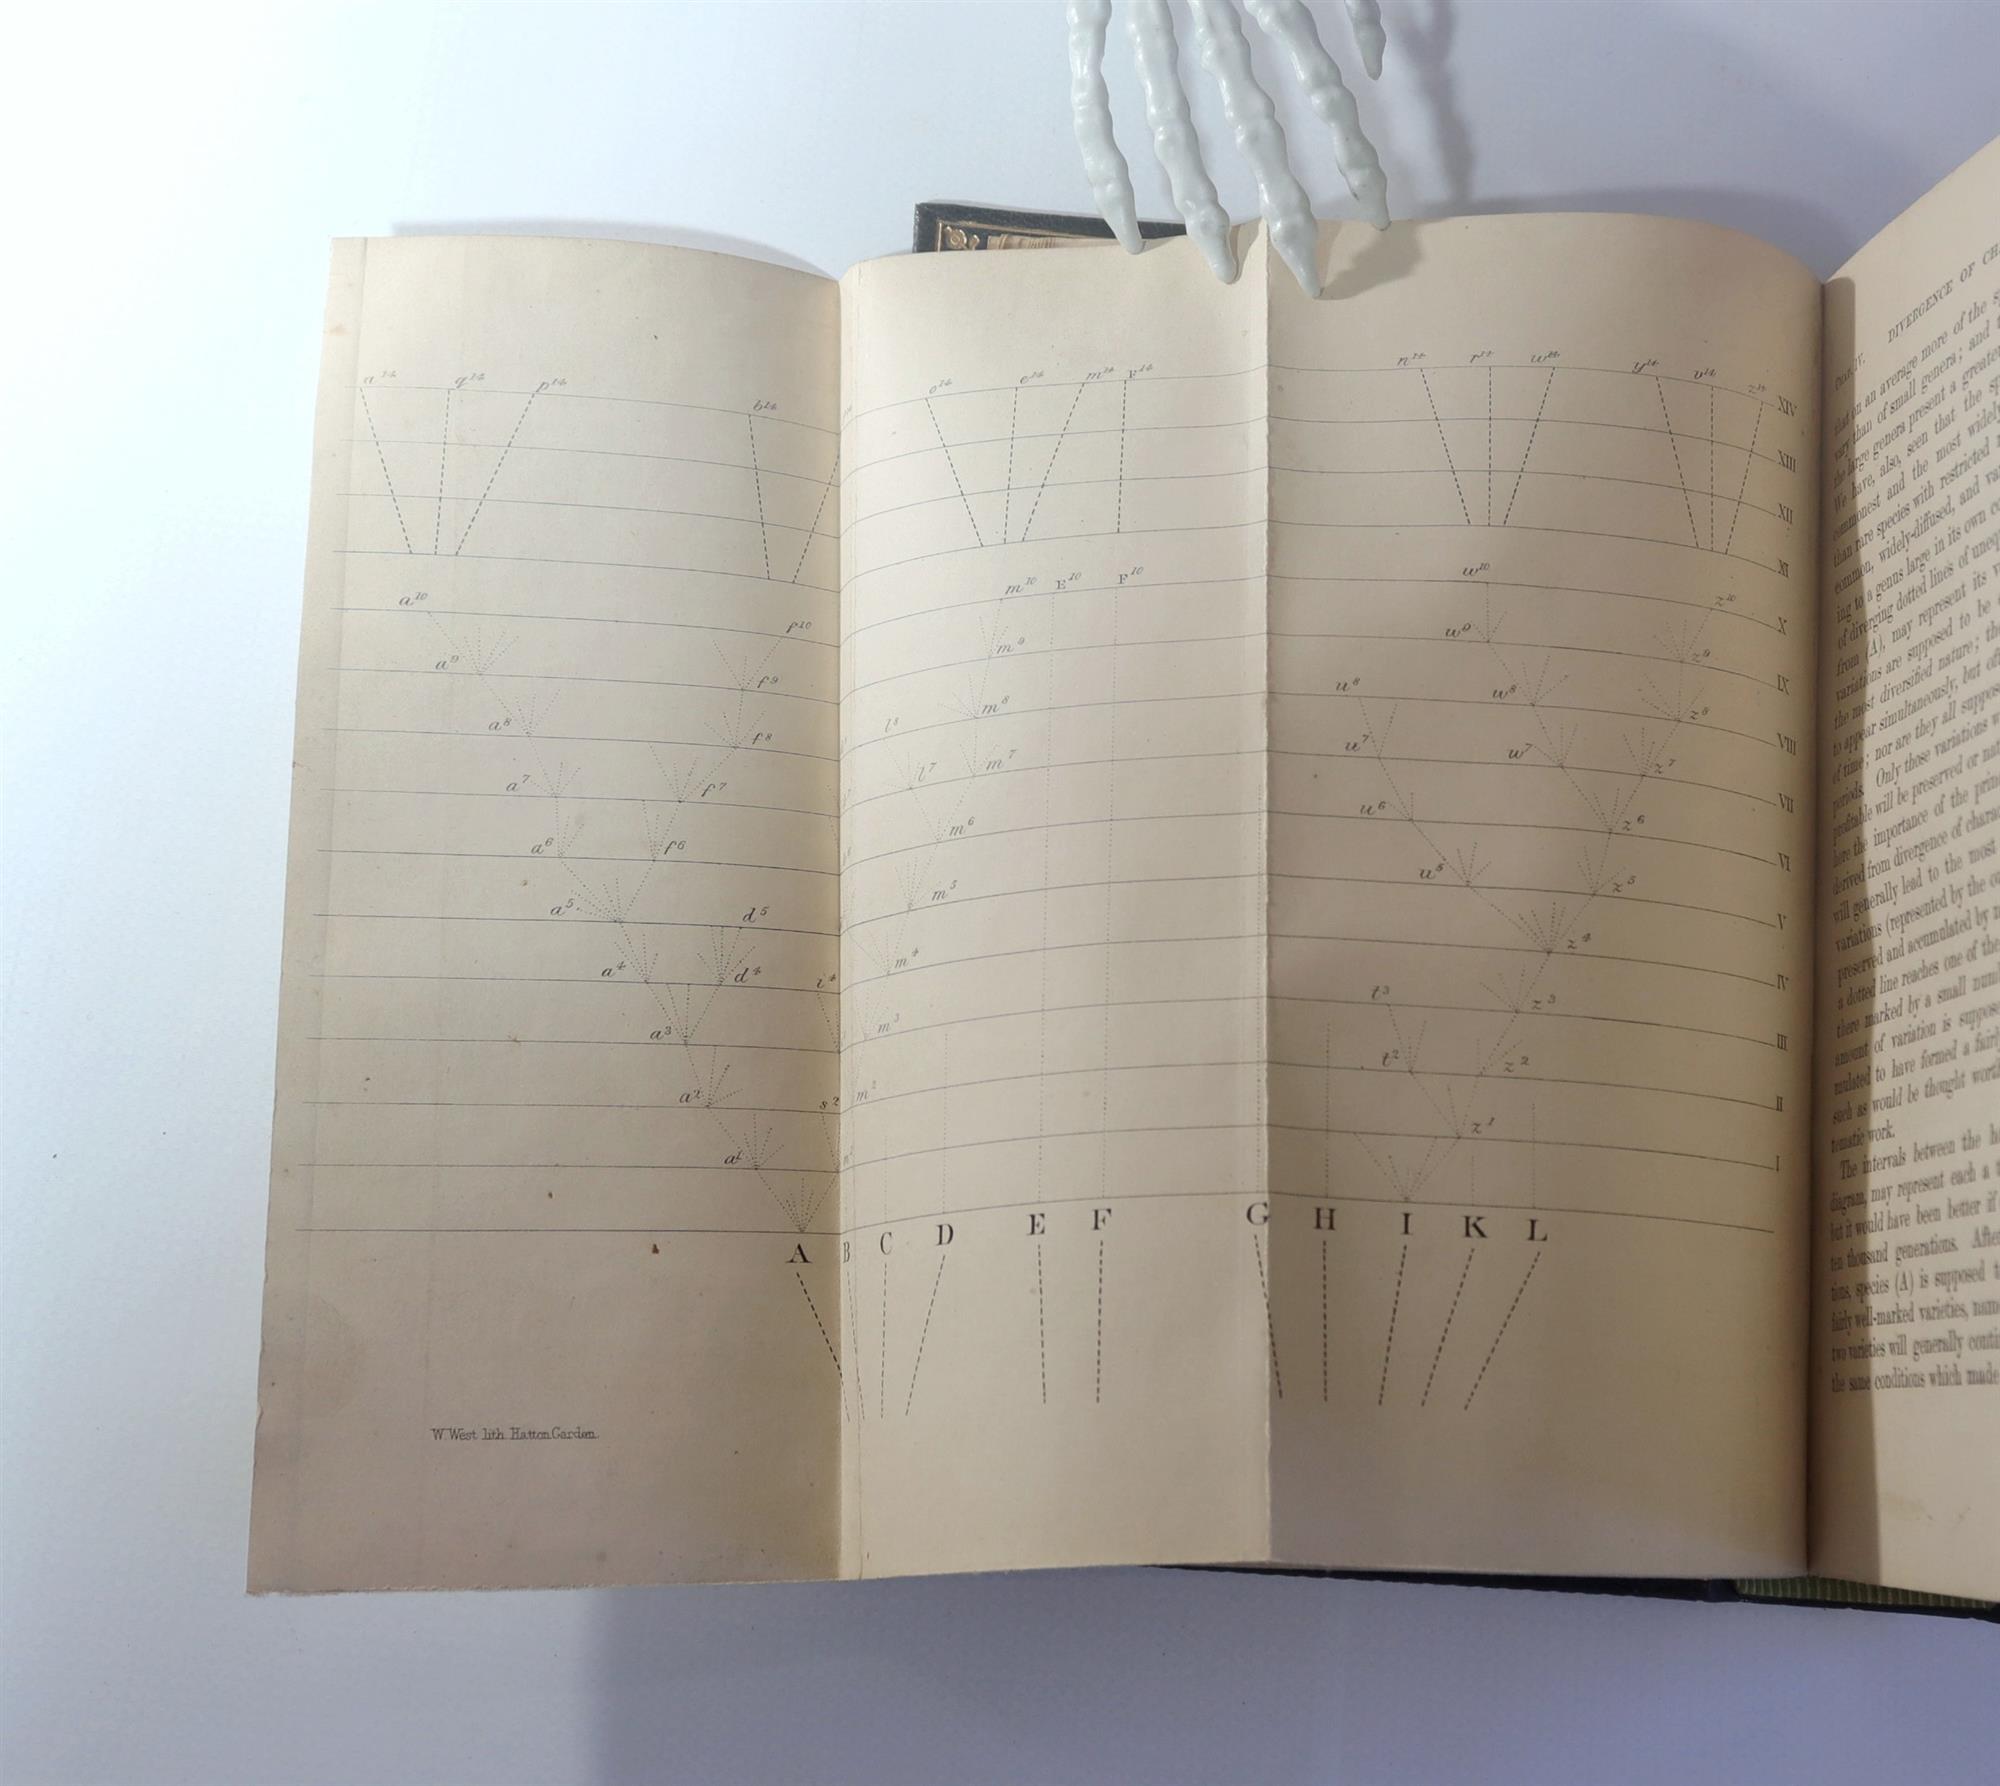 a¹⁴ q¹⁴ p¹⁴ b¹⁴ o¹⁴ e¹⁴ m¹⁴ F¹⁴ n¹⁴ r¹⁴ w¹⁴ y¹⁴ v¹⁴ z¹⁴ XIV
XIII
XII
XI
a¹⁰ f¹⁰ m¹⁰ E¹⁰ F¹⁰ w¹⁰ z¹⁰ X
a⁹ f⁹ m⁹ w⁹ z⁹ IX
a⁸ f⁸ l⁸ m⁸ u⁸ w⁸ z⁸ VIII
a⁷ f⁷ l⁷ m⁷ u⁷ w⁷ z⁷ VII
a⁶ f⁶ m⁶ u⁶ z⁶ VI
a⁵ d⁵ m⁵ u⁵ z⁵ V
a⁴ d⁴ i⁴ m⁴ z⁴ IV
a³ m³ t³ z³ III
a² s² m² t² z² II
a¹ z¹ I
A B C D E F G H I K L
W. West lith. Hatton Garden.
CHAP. IV. DIVERGENCE OF
that on an average more of the
vary than of small genera; and
the large genera present a greater
We have, also, seen that the
commonest and the most widely
than rare species with restricted
common, widely-diffused, and
ing to a genus large in its own
of diverging dotted lines of
from (A), may represent its
variations are supposed to be
the most diversified nature;
to appear simultaneously, but
of time; nor are they all
periods. Only those variations
profitable will be preserved or
here the importance of the
derived from divergence of
will generally lead to the most
variations (represented by the
preserved and accumulated by
a dotted line reaches one of the
there marked by a small
amount of variation is
mulated to have formed a fairly
such as would be thought
tematic work.
The intervals between the
diagram, may represent each a
but it would have been better if
ten thousand generations. After
tions, species (A) is supposed
fairly well-marked varieties,
two varieties will generally
the same conditions which made